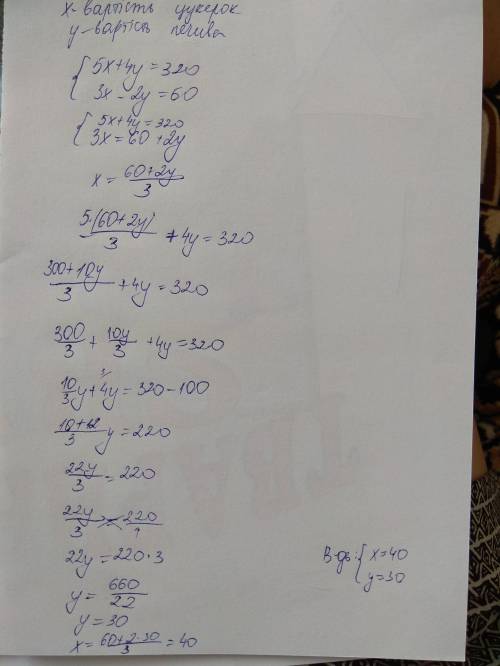 x - вартість цукерок
y - вартість печива
{ 5x+4y=320
3x-2y=60
{ 5x+4y=320
3x=60+2y
x= (60+2y)/3
5·(60+2y)/3 +4y=320
(300+10y)/3 +4y=320
300/3 + 10y/3 +4y=320
10/3 y+4y=320-100
(10+12)/3 y=220
22y/3 =220
22y/3 = 220/1
22y=220·3
y= 660/22
y=30
x= (60+2·30)/3 =40
В-дь: { x=40
y=30